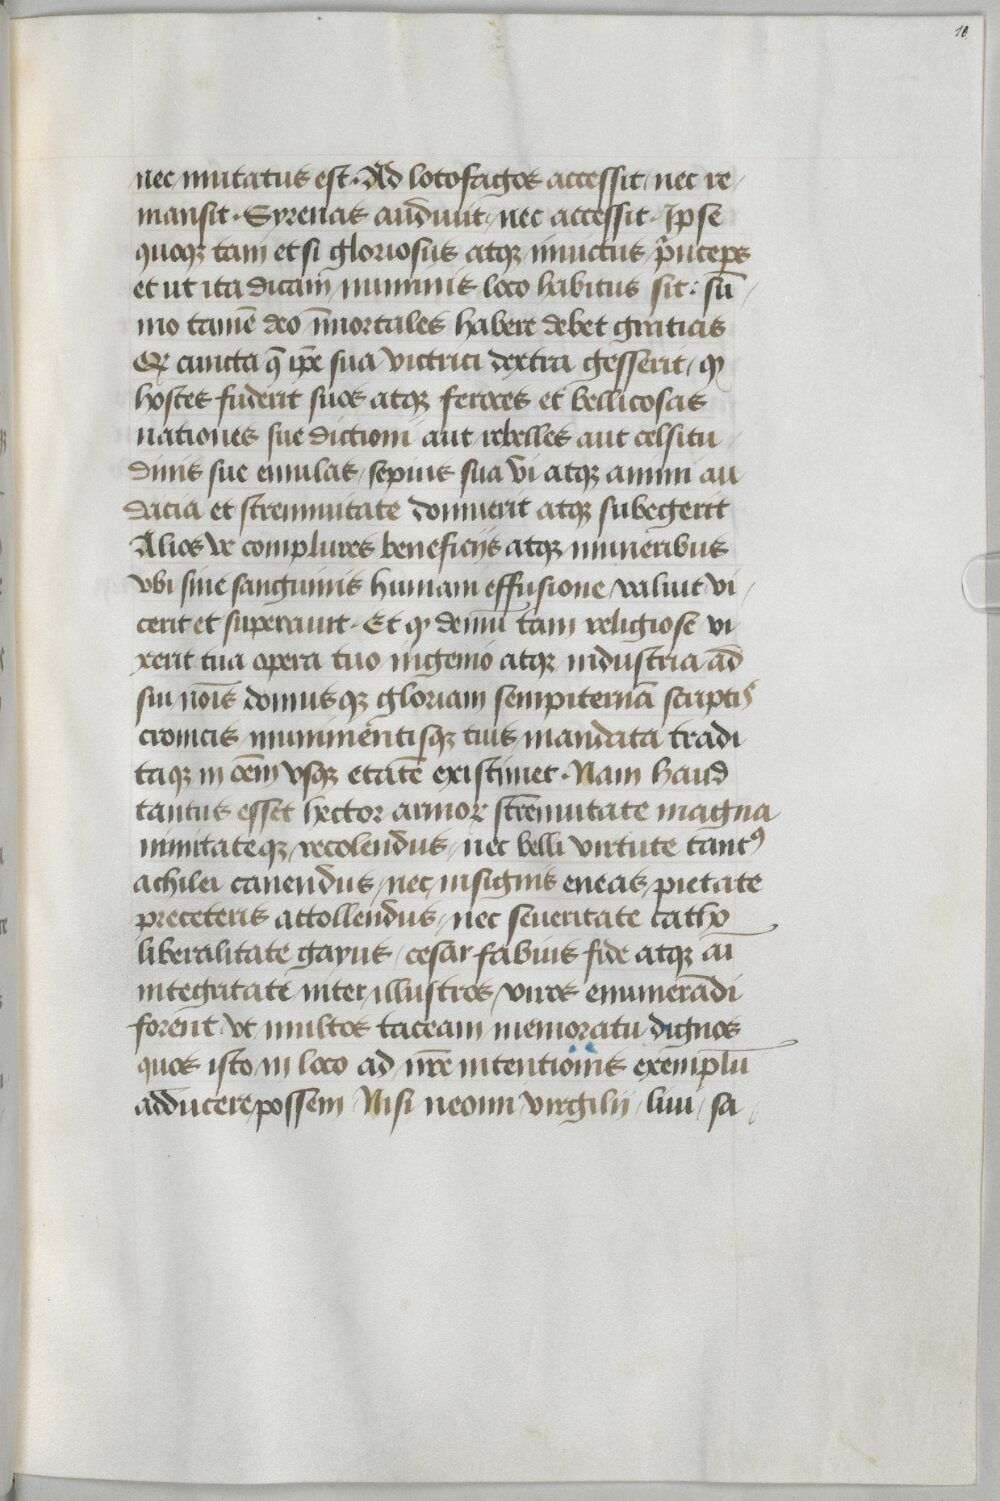 10
nec mutatus est. Ad lotofagos accessit, nec re
mansit. Syrenas audiuit, nec accessit. Ipse
quoqꝫ tam et si gloriosus atqꝫ inuictus p̃nceps
et ut ita dicam numinis loco habitus sit: sũ
mo tamẽ deo ĩmortales habere debet graticis
Qꝛ cuncta q̃ ip̃e sua victrici dextra gesserit, qꝫ
hostes fuderit suos atqꝫ feroces et bellicosas
nationes sue dictioni aut rebelles aut celsitu
dinis sue emulas, sepius sua vi atqꝫ animi au
dacia et strennuitate domuerit atqꝫ subegerit
Alios vͦ complures beneficijs atqꝫ muneribus
vbi sine sanguinis humani effusione valuit vi
cerit et superauit. Et qꝫ demũ tam religiose vi
xerit tua opera tuo ingenio atqꝫ industria ad
sui nõis domus qꝫ gloriam sempiternã scriptis
cronicis munimentisqꝫ tuis mandata tradi
taqꝫ in oẽm vsqꝫ etatẽ existimet. Nam haud
tantus esset hector armoꝝ strẽnuitate magna
nimitateqꝫ recolendus, nec belli virtute tantꝰ
achilei canendus, nec insignis eneas pietate
preceteris attollendus, nec seueritate catho
liberalitate gayus, cesar fabius fide atqꝫ ai
integritate inter illustros viros enumerãdi
forent vt multos taceam memoratu dignos
quos isto in loco ad nr̃e intentionis exemplũ
adducere possem Nisi neoim virgilij, liui, sa